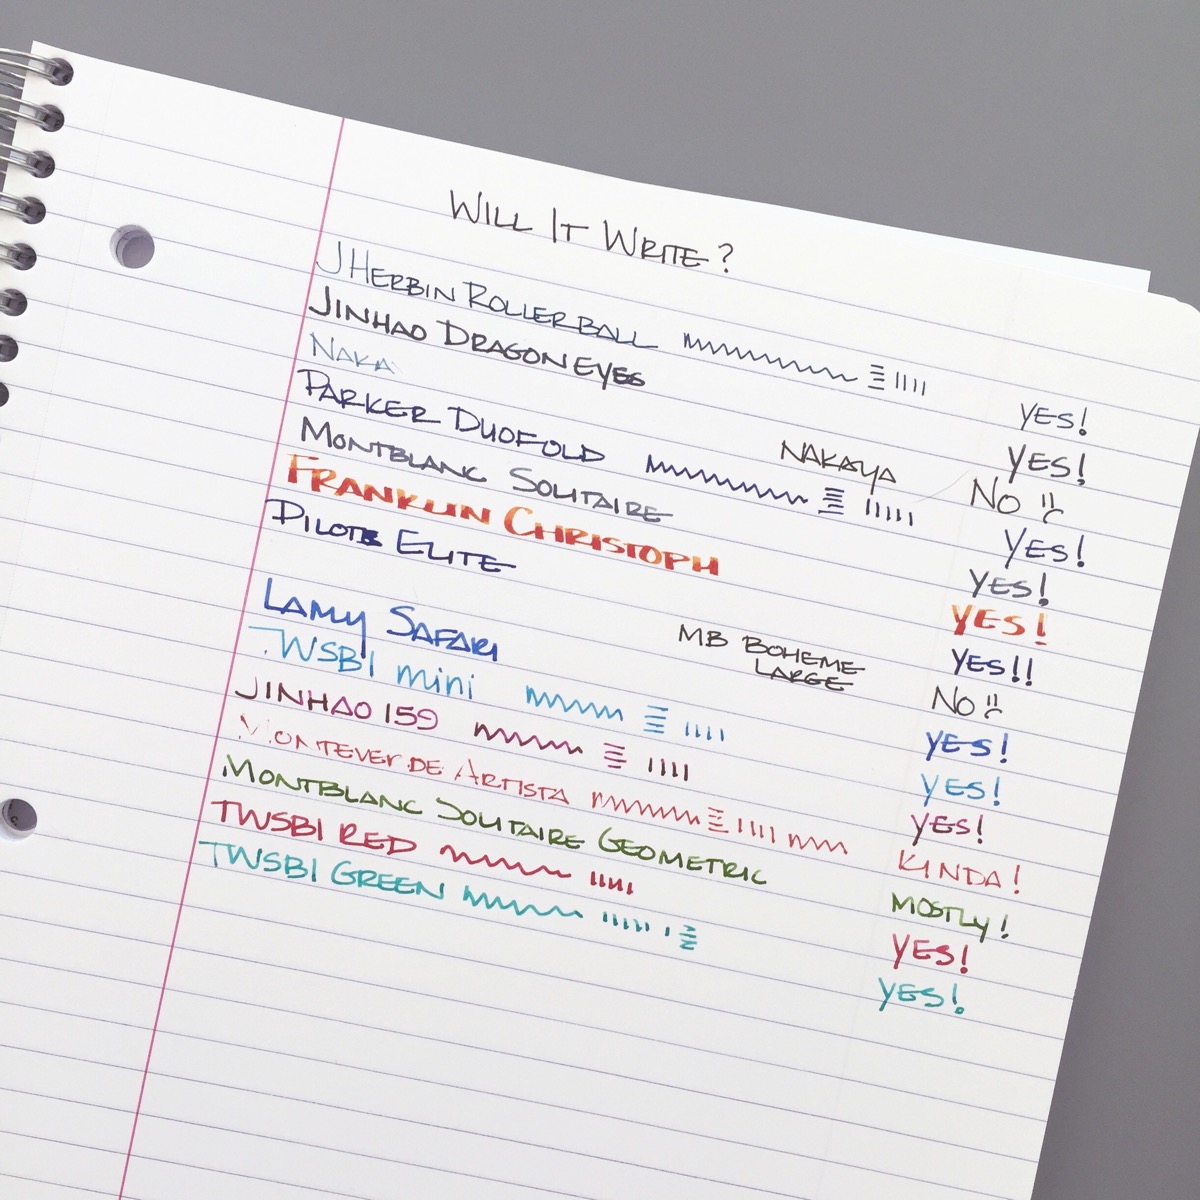 WILL IT WRITE?
J HERBIN ROLLERBALL YES!
JINHAO DRAGON EYES YES!
NAKA NAKAYA NO
PARKER DUOFOLD YES!
MONTBLANC SOLITAIRE YES!
FRANKLIN CHRISTOPH YES!
PILOT ELITE YES!!
MB BOHEME LARGE NO
LAMY SAFARI YES!
TWSBI mini YES!
JINHAO 159 YES!
MONTEVERDE ARTISTA KINDA!
MONTBLANC SOLITAIRE GEOMETRIC MOSTLY!
TWSBI RED YES!
TWSBI GREEN YES!